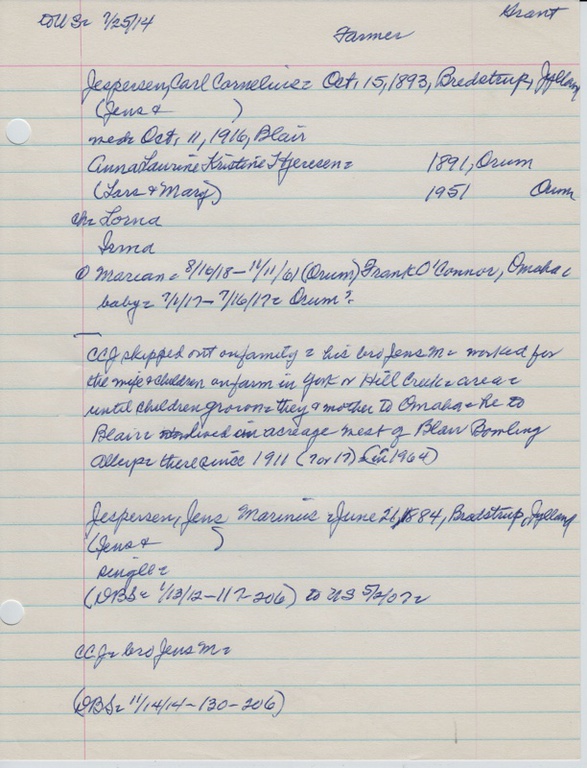 to US= 7/25/14
Grant
Farmer
Jespersen, Carl Cornelius= Oct. 15, 1893, Bredstrup, Jylland
(Jens + )
med= Oct. 11, 1916, Blair
Anna Laurine Kristine Hjeresen= 1891, Orum
(Lars + Mary) 1951 Orum
ch= Lorna
Irma
Marian= 8/16/18 - 11/11/61 (Orum) Frank O'Connor, Omaha
baby= 7/1/17 - 7/16/17= Orum?
CCJ skipped out on family= his bro Jens M= worked for
the wife + children on farm in York or Hill Creek= area=
until children grown= they + mother to Omaha= he to
Blair= lived in acreage west of Blair Bowling
Alley= there since 1911 (7 or 17) (in 1964)
Jespersen, Jens Marinius= June 26, 1884, Bredstrup, Jylland
(Jens + )
single=
(DBS= 1/13/12-117-206) to US 5/2/07=
CCJ= bro Jens M=
(DBS= 11/14/14-130-206)